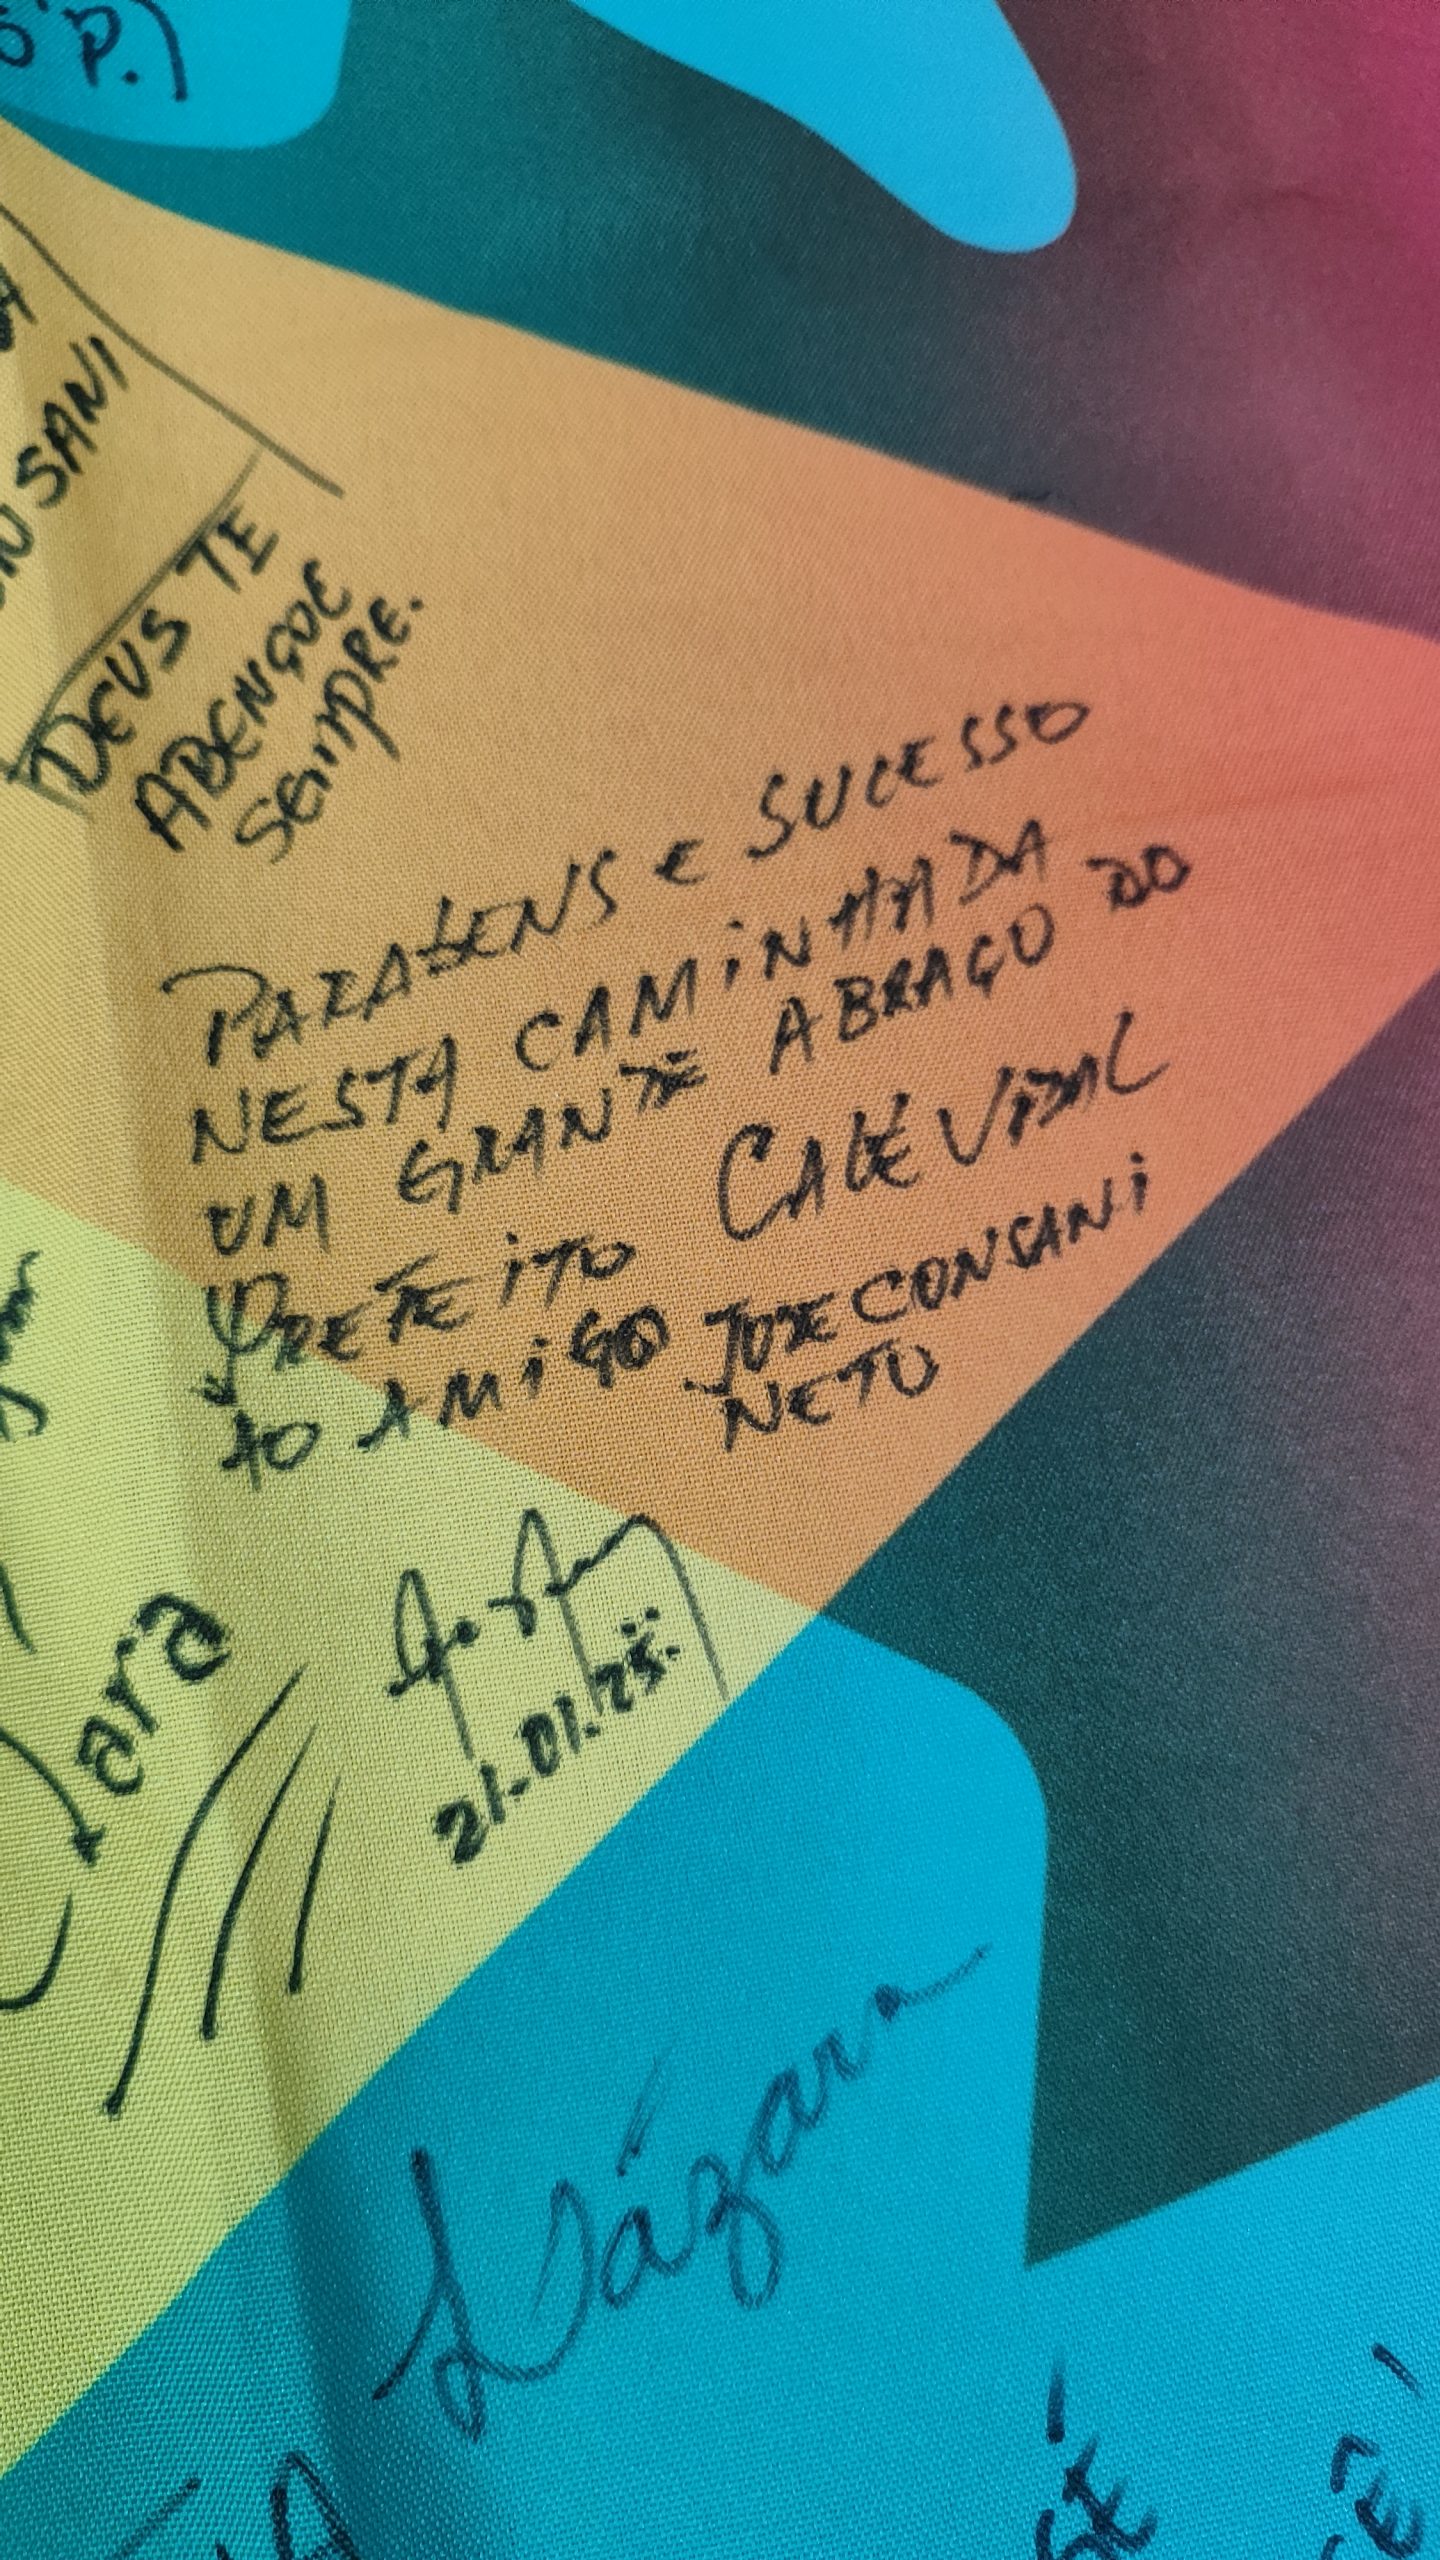 P.)
SANI
DEUS TE
ABENÇOE
SEMPRE.
PARABENS E SUCESSO
NESTA CAMINHADA
UM GRANDE ABRAÇO DO
PREFEITO CALÉ VIDAL
AO AMIGO JOSE CONSANI
NETO
21.01.25.
Lázara